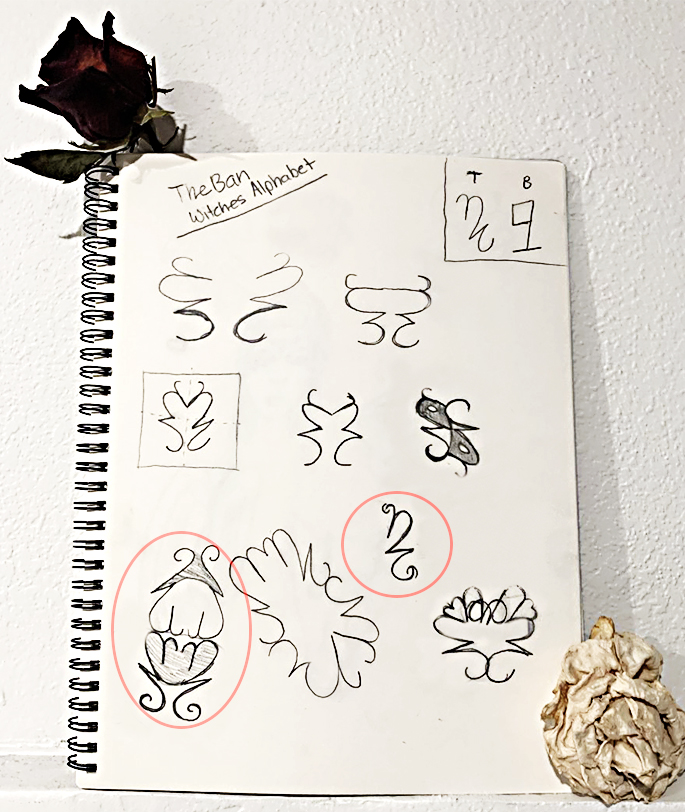 TheBan
Witches Alphabet
T B